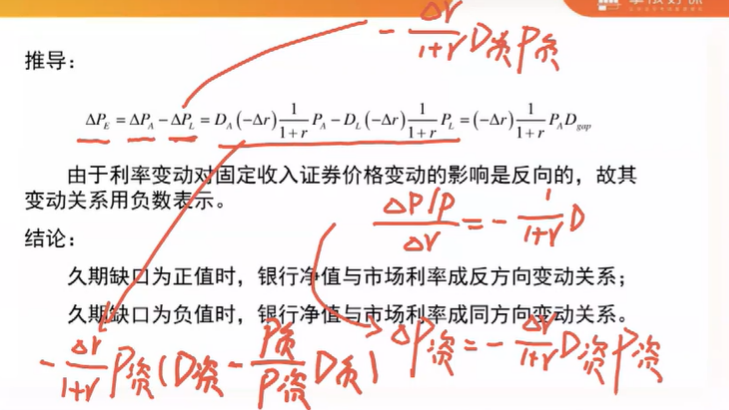 -Δr/1+r D负P负
推导：
ΔP_E = ΔP_A − ΔP_L = D_A(−Δr) 1/1+r P_A − D_L(−Δr) 1/1+r P_L = (−Δr) 1/1+r P_A D_gap
由于利率变动对固定收入证券价格变动的影响是反向的，故其
变动关系用负数表示。
ΔP/P/Δr = -1/1+r D
结论：
久期缺口为正值时，银行净值与市场利率成反方向变动关系；
久期缺口为负值时，银行净值与市场利率成同方向变动关系。
-Δr/1+r P资(D资-P负/P资 D负) ΔP资=-Δr/1+r D资P资